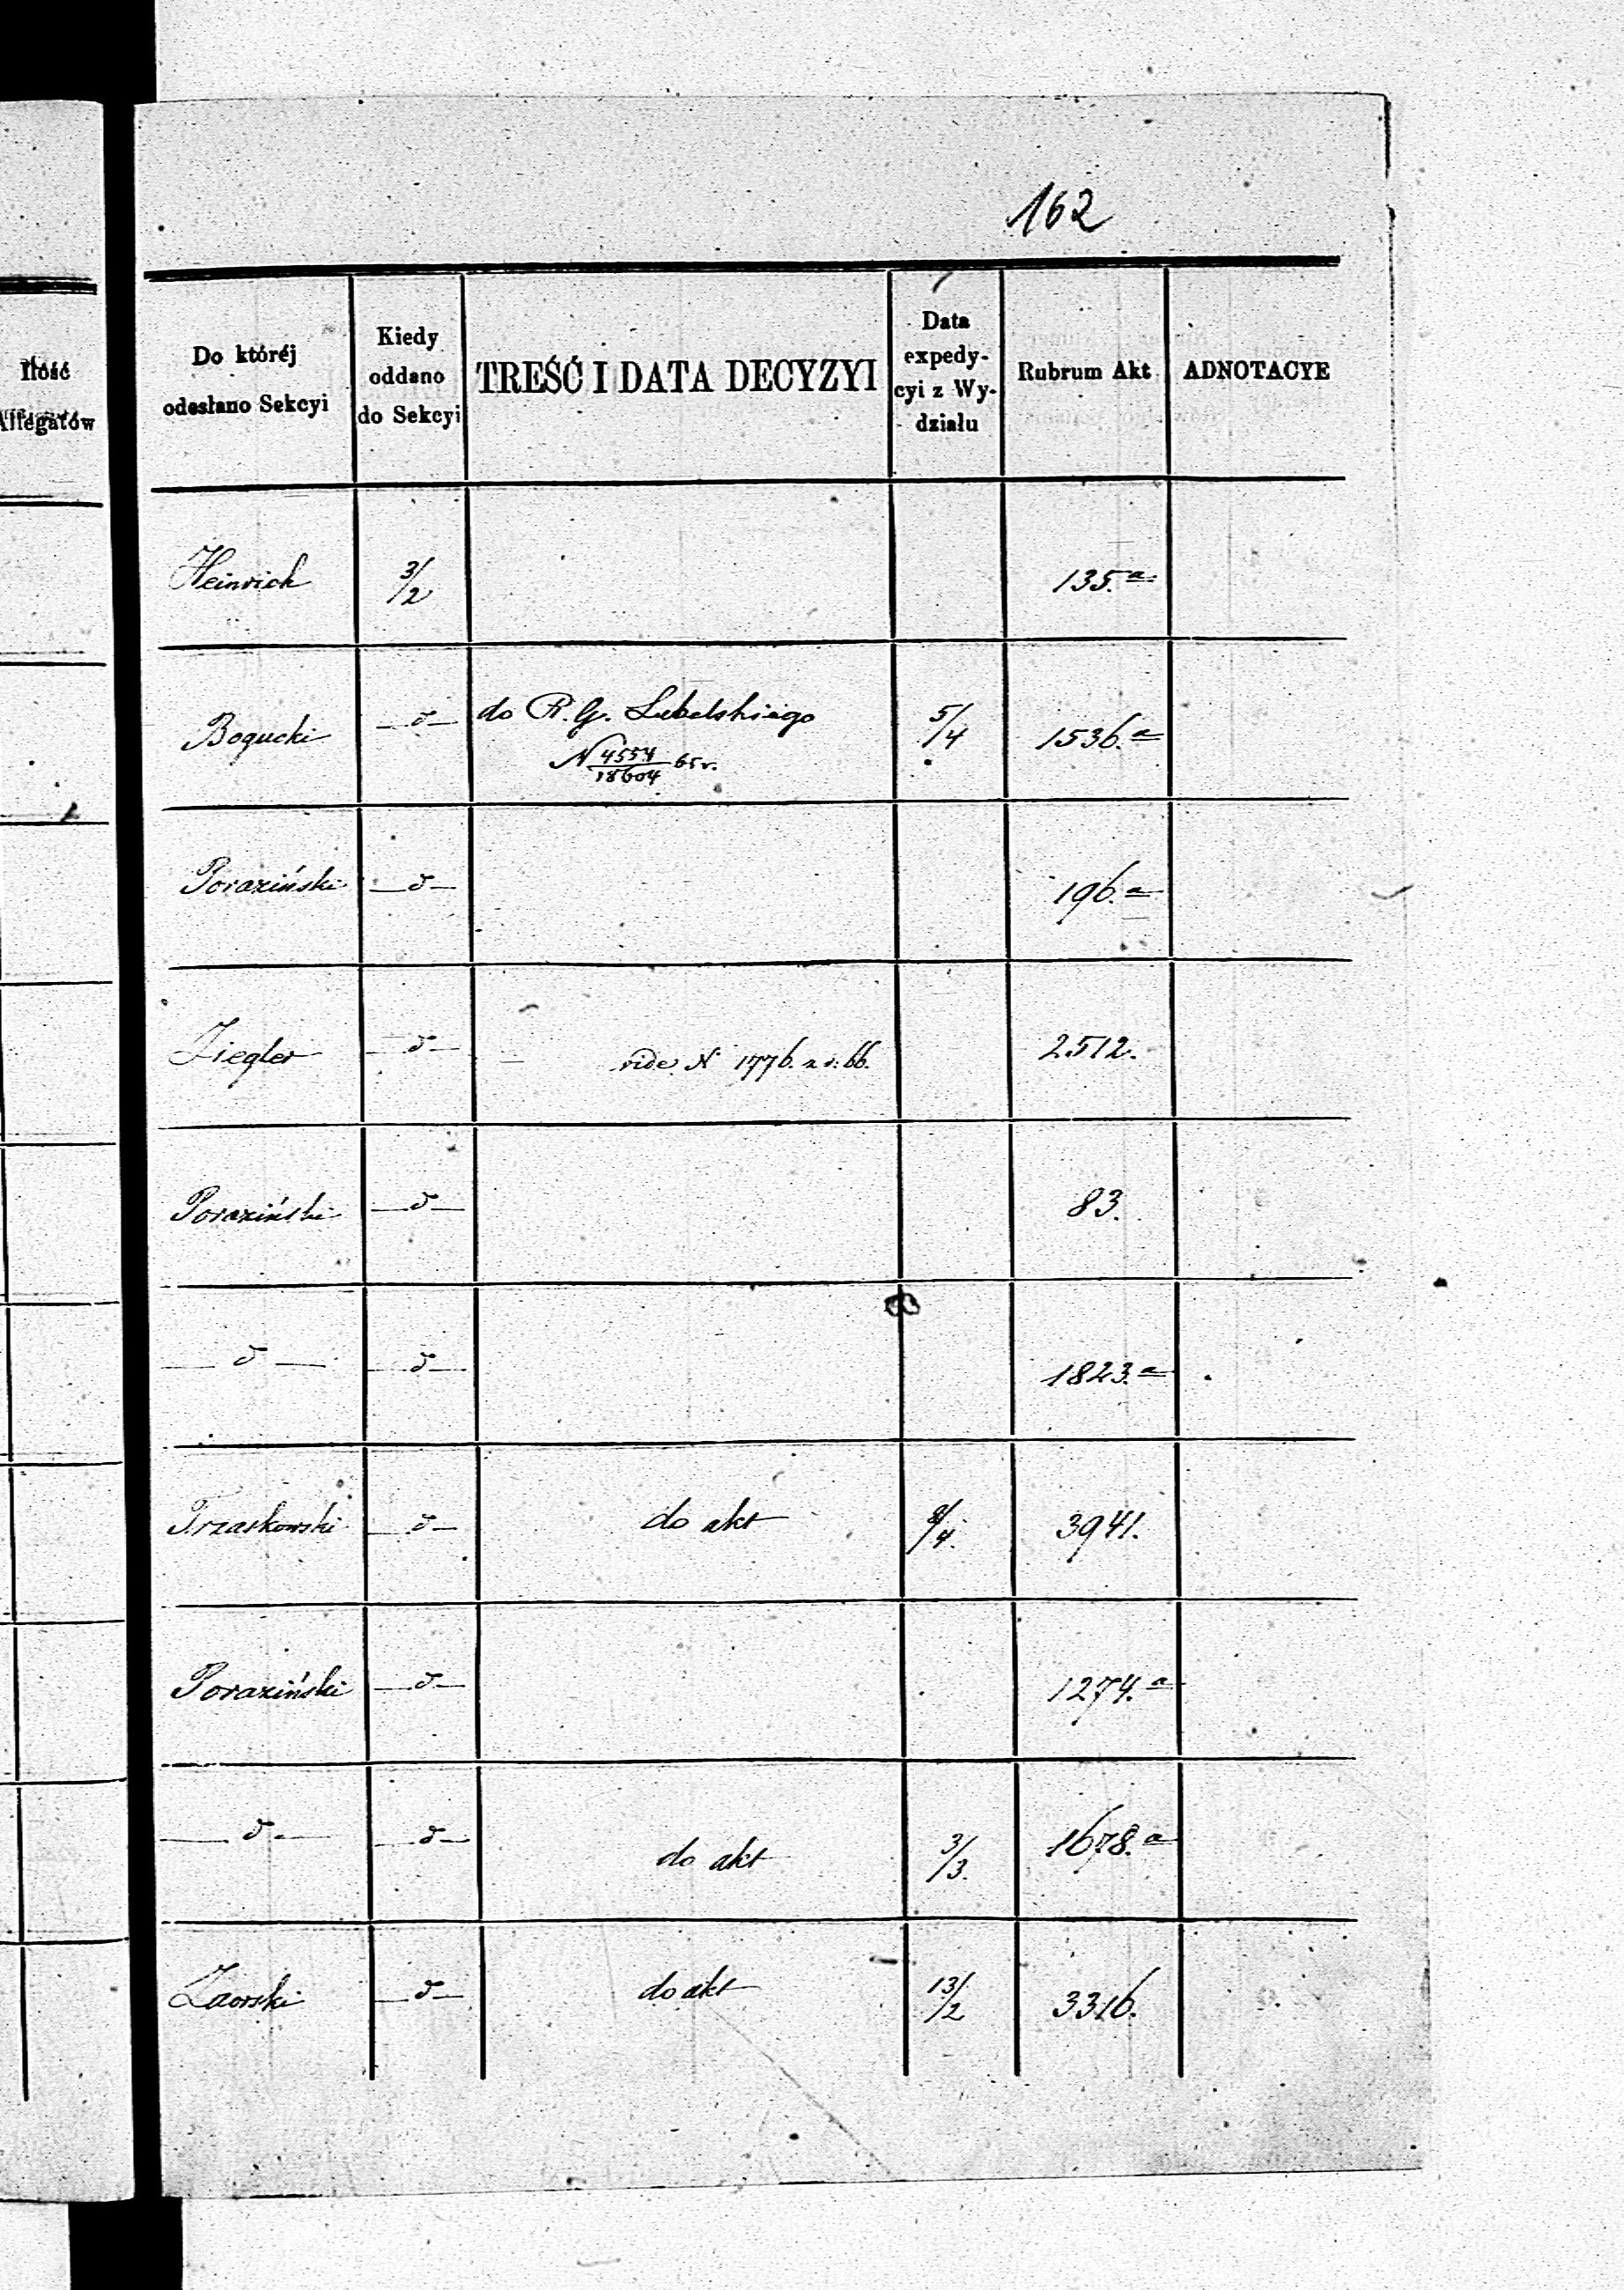 162
Ilość
Allegatów
Do któréj
odesłano Sekcyi
Kiedy
oddano
do Sekcyi
TREŚĆ I DATA DECYZYI
Data
expedy-
cyi z Wy-
działu
Rubrum Akt
ADNOTACYE
Heinrich 3/2 135.a
Bogucki —d— do R. G. Lubelskiego 5/4 1536.a
N 4554/18604 65 r.
Poraziński —d— 196.a
Ziegler —d— vide N 1776. z r. 66. 2512.
Poraziński —d— 83.
—d— —d— 1823.a
Trzaskowski —d— do akt 8/4. 3941.
Poraziński —d— 1274.a
—d— —d— do akt 3/3. 1678.a
Zaorski —d— do akt 13/2 3316.